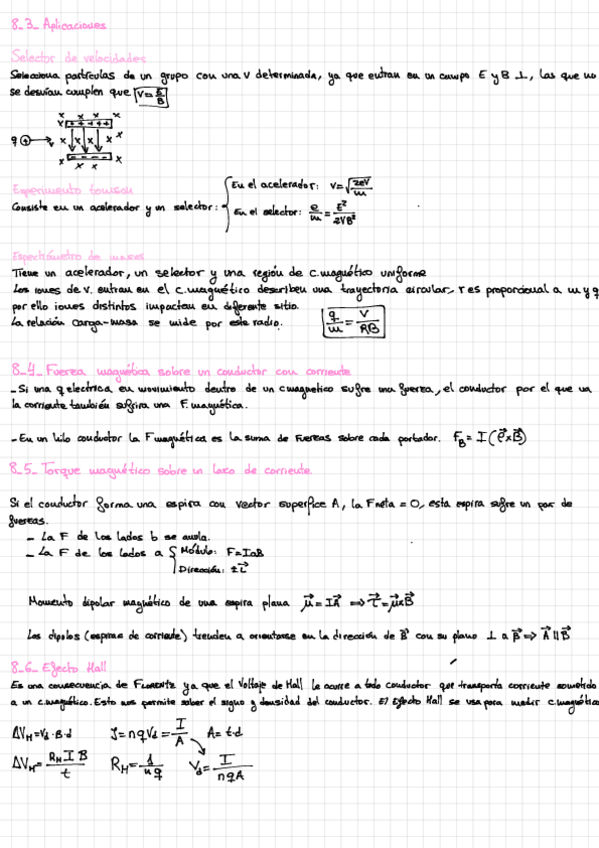 8_3_ Aplicaciones
Selector de velocidades
Selecciona partículas de un grupo con una v determinada, ya que entran en un campo E y B ⊥, las que no
se desvían cumplen que v = E/B
x x x x
x + + + +
q ⊕ → v x x x x
x - - - -
x x
Experimento Tomson
Consiste en un acelerador y un selector: { En el acelerador: v = √(2eV/m)
En el selector: e/m = E²/2VB²
Espectrómetro de masas
Tiene un acelerador, un selector y una región de c.magnético uniforme
Los iones de v. entran en el c.magnético describen una trayectoria circular, r es proporcional a m y q
por ello iones distintos impactan en diferente sitio.
La relación carga-masa se mide por este radio. q/m = V/RB
8_4_ Fuerza magnética sobre un conductor con corriente
_ Si una q electrica en movimiento dentro de un cmagnetico sufre una fuerza, el conductor por el que va
la corriente también sufrira una F.magnética.
- En un hilo conductor la Fmagnética es la suma de Fuerzas sobre cada portador. F_B = I(ℓ⃗xB⃗)
8_5_ Torque magnético sobre un lazo de corriente.
Si el conductor forma una espira con vector superfice A, la Fneta = 0, esta espira sufre un par de
fuerzas.
_ La F de los lados b se anula.
_ La F de los lados a { Módulo: F=IaB
Dirección: ±
Momento dipolar magnético de una espira plana μ⃗ = IA⃗ ⇒ τ⃗ = μ⃗xB⃗
Los dipolos (espiras de corriente) tienden a orientarse en la dirección de B⃗ con su plano ⊥ a B⃗ ⇒ A⃗ || B⃗
8_6_ Efecto Hall
Es una consecuencia de FLORENTZ ya que el Voltaje de Hall le ocurre a todo conductor que transporta corriente sometido
a un c.magnético. Esto nos permite saber el signo y densidad del conductor. El Efecto Hall se usa para medir c.magnético
ΔV_H = V_d · B · d J = nqV_d = I/A A = t·d
ΔV_H = R_H I B/t R_H = 1/nq V_d = I/nqA